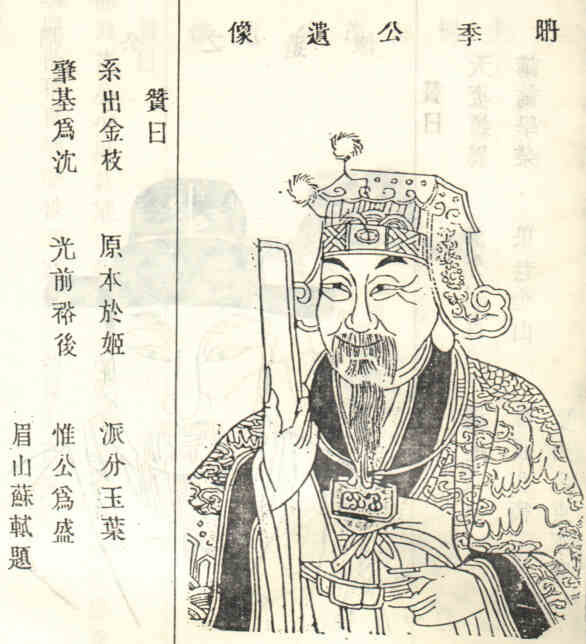 聃季公遺像
贊曰
系出金枝 原本於姬 派分玉葉
肇基爲沈 光前裕後 惟公爲盛
眉山蘇軾題